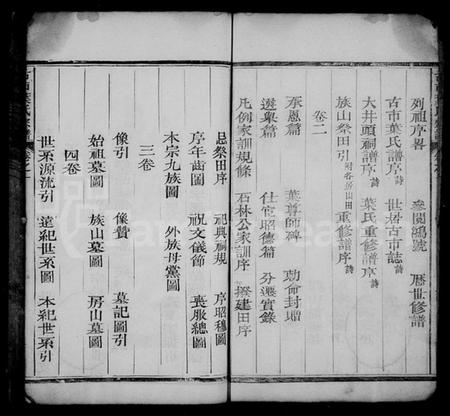 列祖序畧　參閱鴻號　歷世修譜
古市葉氏譜序詩　世居古市誌
大井頭祠譜序詩　葉氏重修譜序詩
族山祭田引　重修譜序詩
卷二
承恩篇　葉尊師碑　勅命封贈
選舉篇　仕宦昭德篇　分遷實錄
凡例家訓規條　石林公家訓序　撥建田序
忌祭田序　祀興祠規　序昭穆圖
序年齒圖　祝文儀節　喪服總圖
本宗九族圖　外族母黨圖
三卷
像引　像贊　墓記圖引
始祖墓圖　族山墓圖　房山墓圖
四卷
世系源流引　遠紀世系圖　本紀世系引